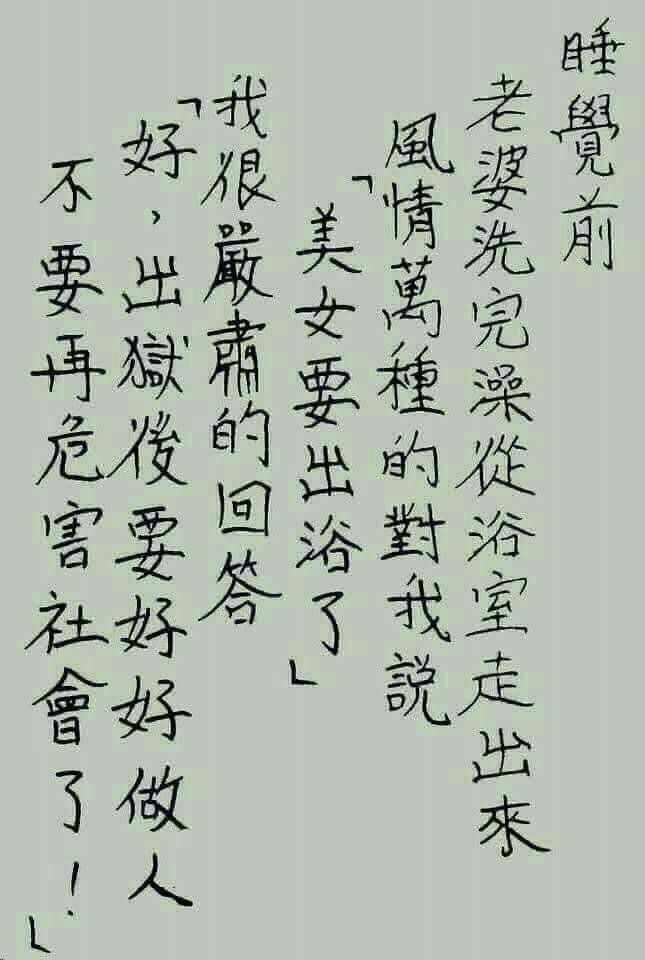 睡覺前
老婆洗完澡從浴室走出來
風情萬種的對我說
「美女要出浴了」
我很嚴肅的回答
「好，出獄後要好好做人
不要再危害社會了！」